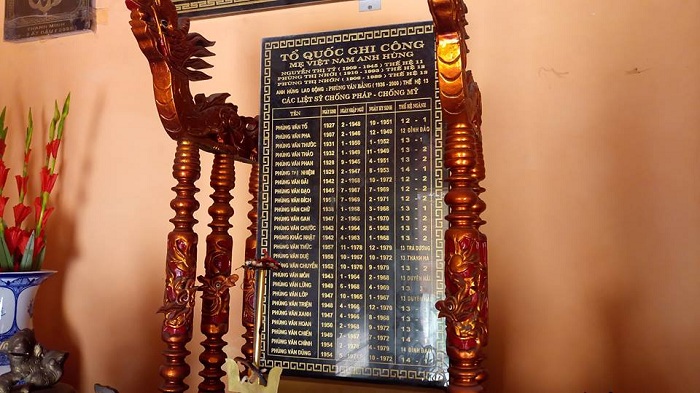 TỔ QUỐC GHI CÔNG
MẸ VIỆT NAM ANH HÙNG
NGUYỄN THỊ TÝ ( 1909 - 1945 ) THẾ HỆ 11
PHÙNG THỊ NHỚI ( 1910 - 1990 ) THẾ HỆ 12
PHÙNG THỊ NHỚN ( 1909 - 1989 ) THẾ HỆ 13
ANH HÙNG LAO ĐỘNG : PHÙNG VĂN BẰNG ( 1936 - 2006 ) THẾ HỆ 13
CÁC LIỆT SỸ CHỐNG PHÁP - CHỐNG MỸ
TÊN NĂM SINH NGÀY NHẬP NGŨ NGÀY HY SINH THẾ HỆ NGÀNH
PHÙNG VĂN TỐ 1927 2 - 1948 10 - 1951 12 - 1
PHÙNG VĂN PHA 1907 2 - 1946 12 - 1949 12 ĐÌNH ĐÀO
PHÙNG VĂN THƯỚC 1931 1 - 1950 1 - 1952 13 - 1
PHÙNG VĂN THẢO 1932 1 - 1949 11 - 1949 13 - 1
PHÙNG VĂN PHAN 1928 9 - 1945 4 - 1951 13 - 2
PHÙNG THỊ NHIỆM 1929 2 - 1947 8 - 1953 14 - 1
PHÙNG VĂN ĐÀI 1942 2 - 1968 10 - 1972 12 - 2
PHÙNG VĂN ĐÀI 1945 2 - 1968 1 - 1971 12 - 2
PHÙNG VĂN BÍCH 5 - 1968 13 - 2
PHÙNG VĂN CHỮ 3 - 1968 13 - 1
PHÙNG VĂN GAN 1947 2 - 1967 3 - 1970 13 - 2
PHÙNG VĂN CHƯỚC 1943 2 - 1965 4 - 1968 13 - 1
PHÙNG KHẮC NHẬT 1942 4 - 1963 1 - 1968 13 - 2
PHÙNG VĂN THỨC 1957 11 - 1978 12 - 1979 12 TRÀ DƯƠNG
PHÙNG VĂN DUỆ 1950 10 - 1967 10 - 1972 13 THANH HÀ
PHÙNG VĂN CHUYỂN 1952 10 - 1970 9 - 1972
PHÙNG VĂN MÔN 1943 1 - 1964 2 - 1968 13 DUYÊN HẢI
PHÙNG VĂN LỪNG 1949 4 - 1968
PHÙNG VĂN LỚP 1947 10 - 1965 1 - 1967
PHÙNG VĂN TRIỆN 1948 4 - 1966 4 - 1968 14 - 2
PHÙNG VĂN XANH 1947 4 - 1966 1 - 1968 14 - 2
PHÙNG VĂN HOAN 1950 2 - 1968
PHÙNG VĂN CHIẾN 1949 2 - 1968
PHÙNG VĂN CHÍNH 1954
PHÙNG VĂN DŨNG 1954 10 - 1972 14 - 1